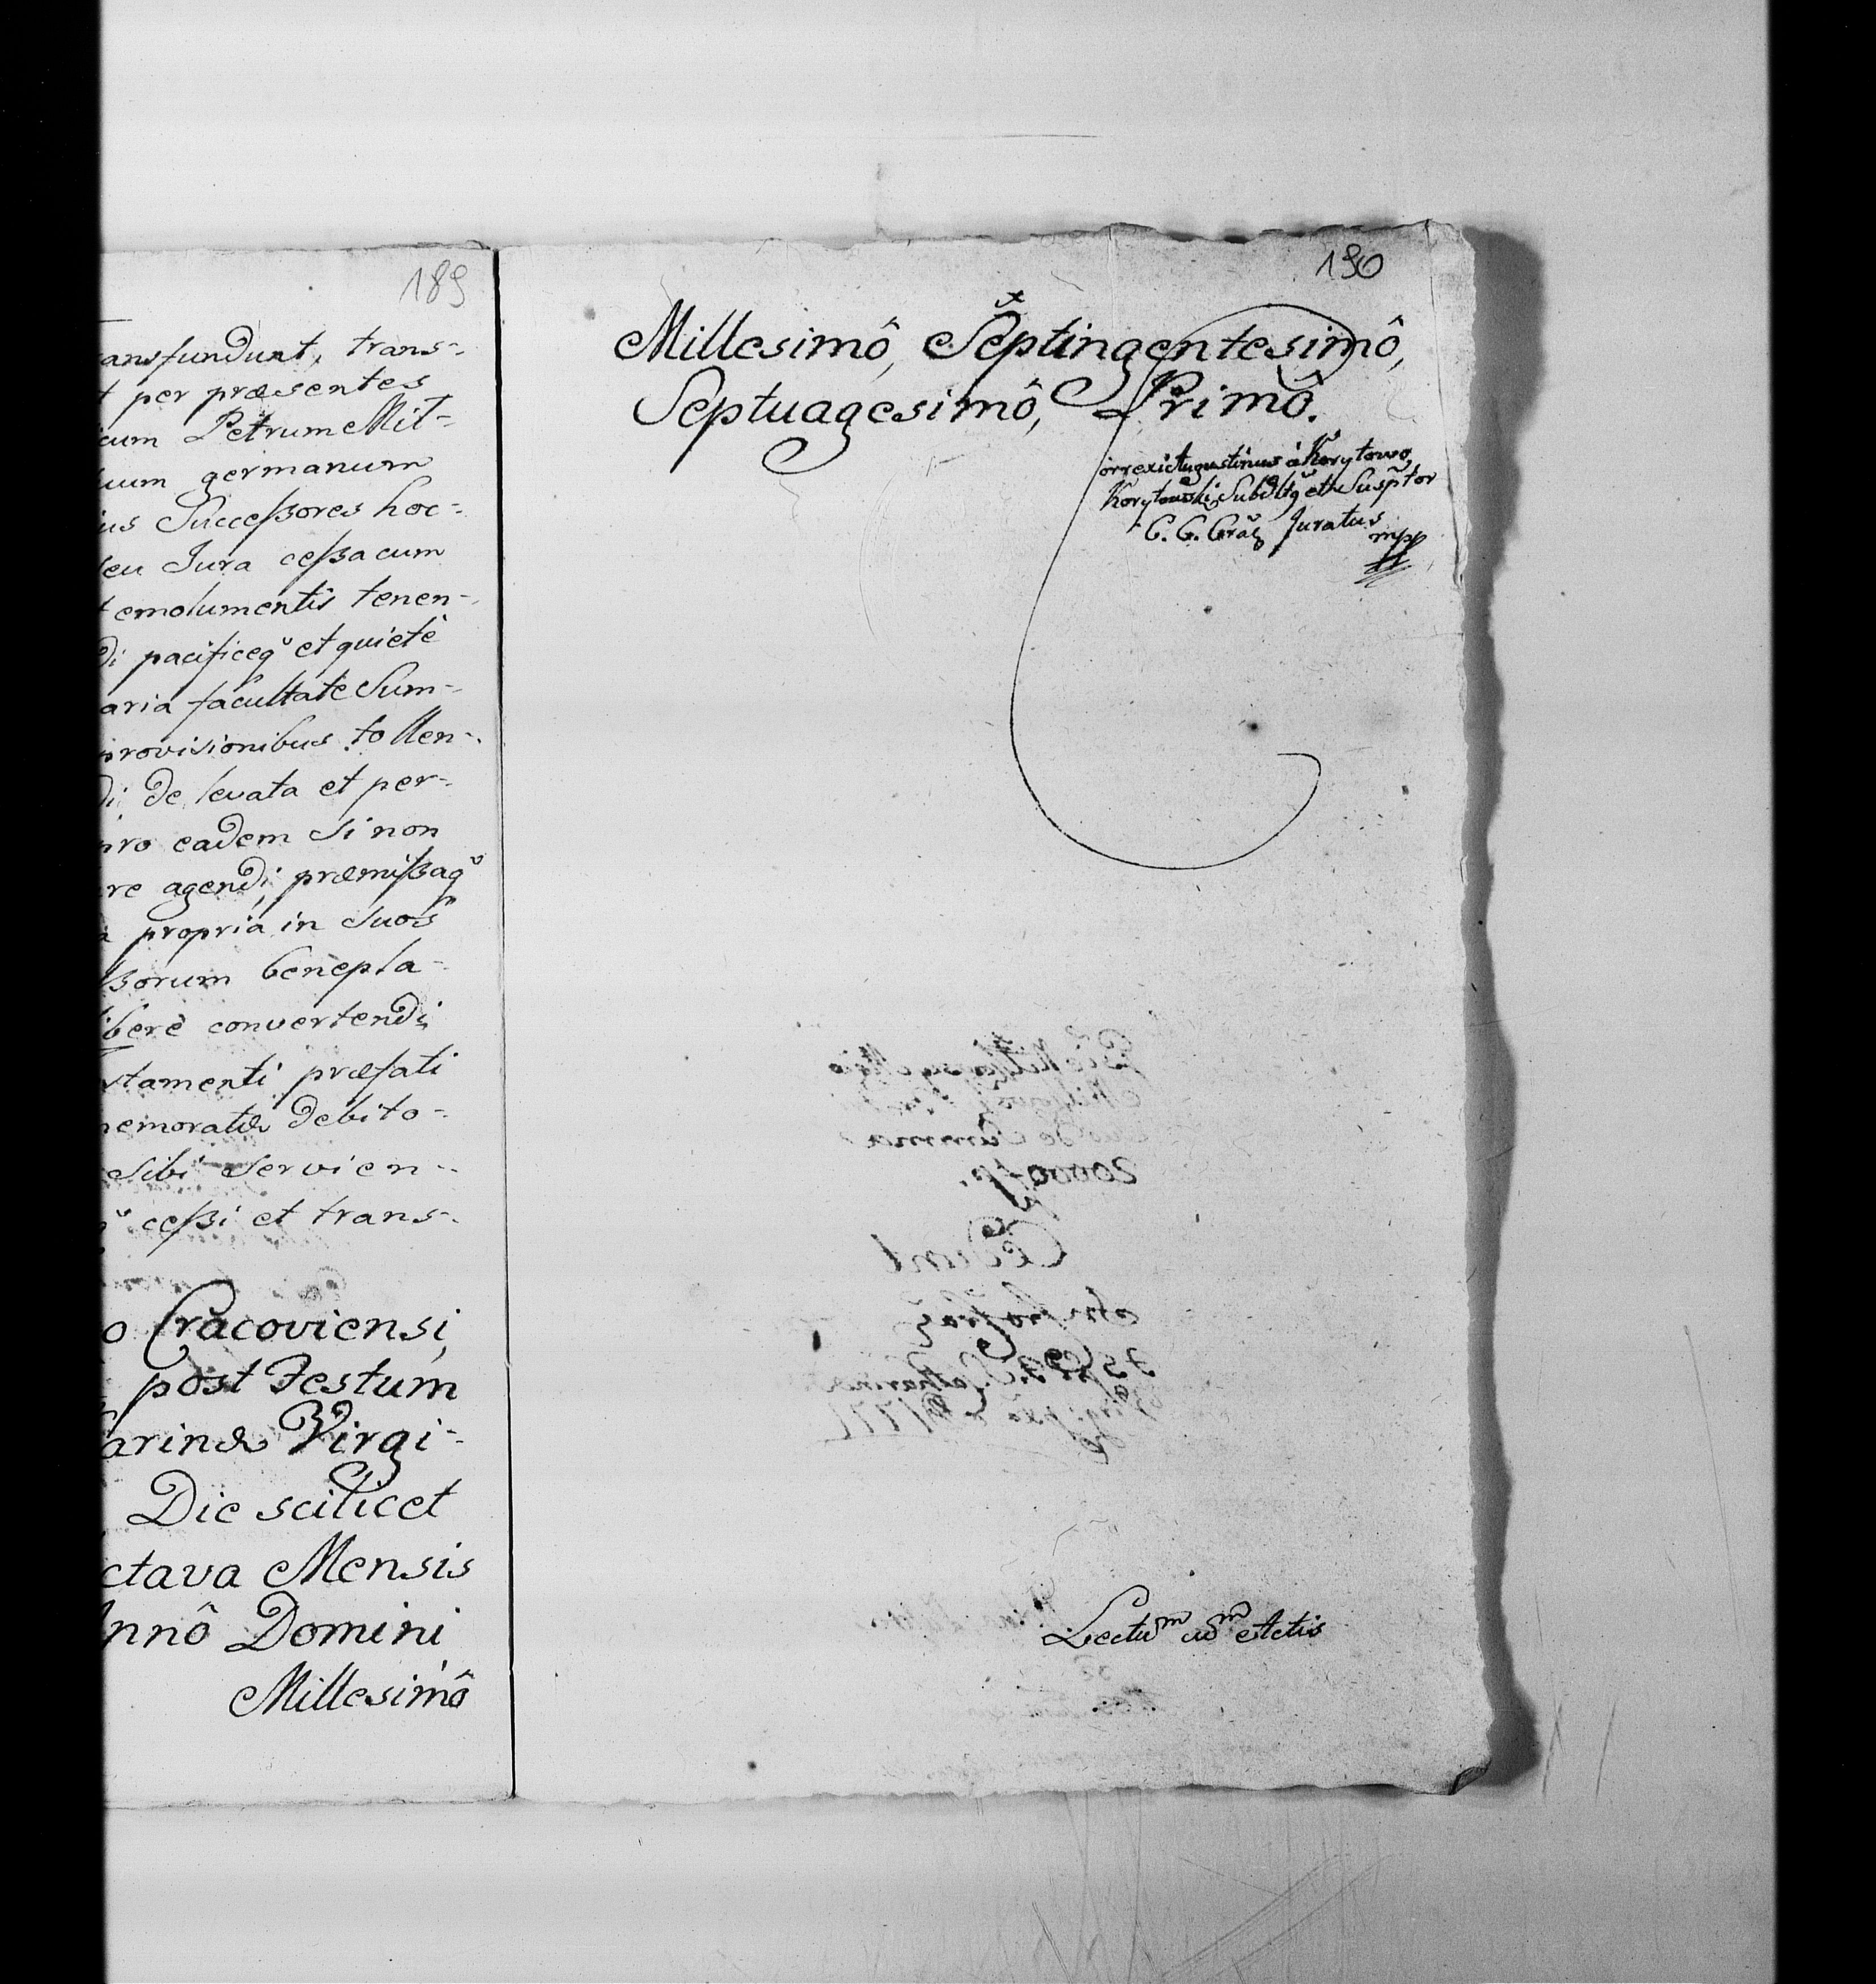 189
ansfundunt, trans-
t per præsentes
cum Petrum Mit-
uum germanum
ius Succeßores hoc-
seu Jura ceßa cum
t emolumentis tenen-
di pacificeq̆ et quietè
aria facultate Sum-
provisionibus tollen-
di de levata et per-
pro eadem si non
re agendi, præmißaq̆
a propria in suos
ßorum benepla-
iberè convertendi,
stamenti præfati
emoratæ debito-
sibi servien-
q̆ ceßi et trans-
o Cracoviensi,
post Festum
arinæ Virgi-
Die scilicet
ctava Mensis
Annô Domini
Millesimô
190
Millesimô, Septingentesimô,
Septuagesimô, Primô.
Correxit Augustinus à Korytowo
Korytowski Subdltq̆ et Suscptor
C. G. Crac̃ Juratus
mpp
20000 fp.
Cedunt
Lectũm cũm Actis